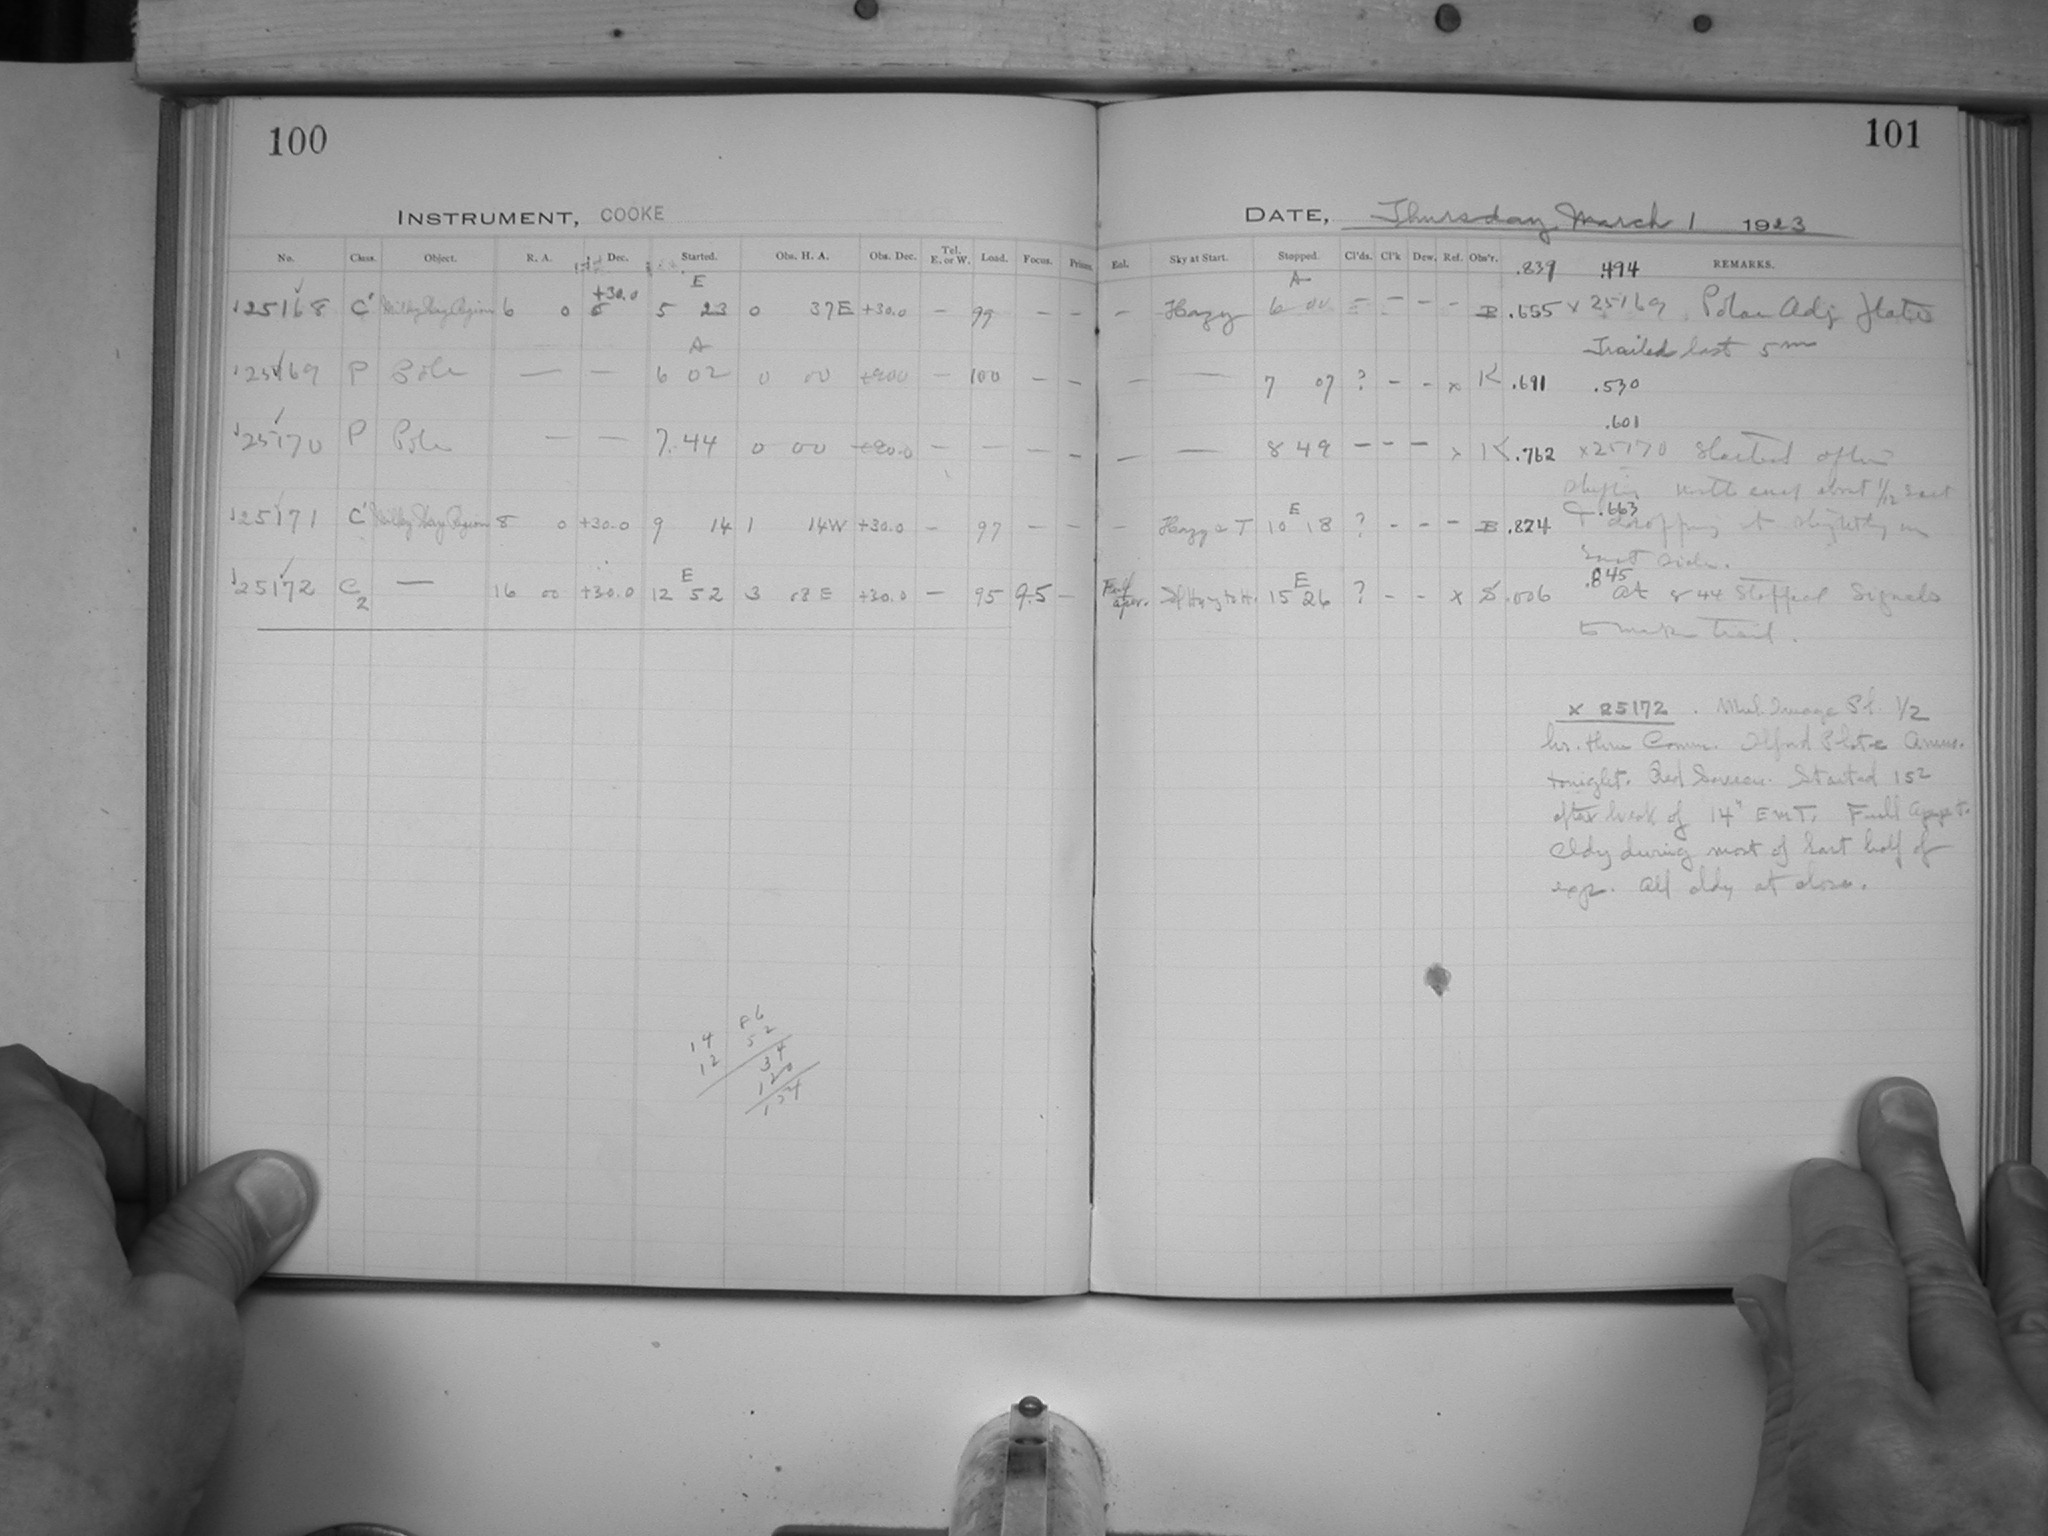 100
INSTRUMENT, COOKE
No. Class. Object. R. A. Dec. Started. Obs. H. A. Obs. Dec. Tel. E. or W. Load. Focus. Prism.
E
25168 C' Milky Way Region 6 0 +30.0 5 23 0 37E +30.0 – 99 – –
A
25169 P Pole — — 6 02 0 00 +90.0 – 100 – –
25170 P Pole — — 7.44 0 00 +90.0 – – – –
25171 C' Milky Way Region 8 0 +30.0 9 14 1 14W +30.0 – 97 – –
E
25172 C2 — 16 00 +30.0 12 52 3 08E +30.0 – 95 9.5 –
14 86
12 52
34
120
154
101
DATE, Thursday March 1 1923
Enl. Sky at Start. Stopped. Cl'ds. Cl'k Dew. Ref. Obs'r. REMARKS.
.839 .494
A
– Hazy 6 00 – – – – B .655 x 25169 Polar Adj Plates
Trailed last 5m
— — 7 07 ? – – x K .691 .530
.601
— — 8 49 – – – x K .762 x25170 Started after
north east about 1/12 East
.663
E
– Hazy & T 10 18 ? – – – B .824 & dropping it slightly on
East side.
.845
E
Full aper. 15 26 ? – – x S .006 At 8 44 Stopped Signals
to make trail.
x 25172 . Mul. Image Pl. 1/2
hr. thru Comm. Ilford Plate Ammo.
tonight. Red Screen. Started 15s
after break of 14h EMT. Full Apert.
Cldy during most of last half of
exp. All cldy at close.